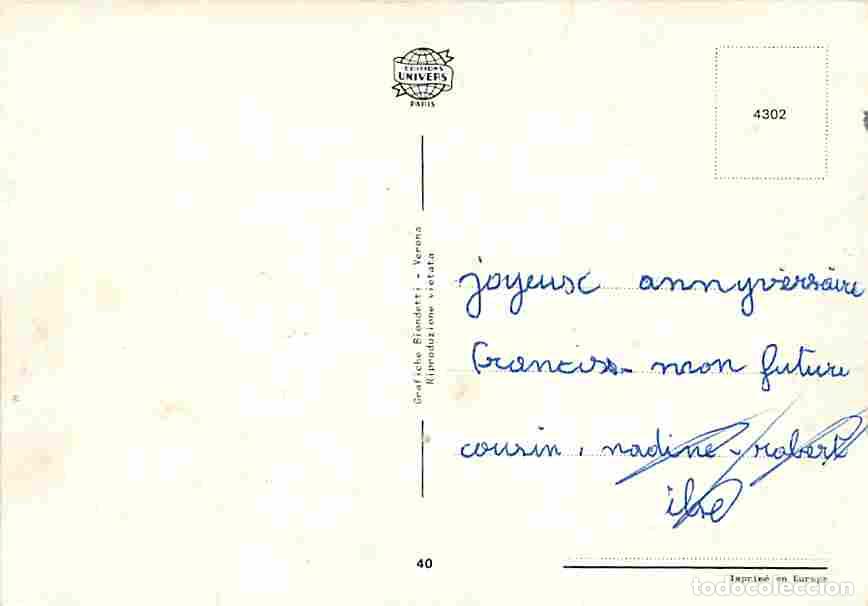 EDITIONS
UNIVERS
PARIS
4302
Grafiche Biondetti - Verona
Riproduzione vietata
joyeuse annyversaire
francis - mon future
cousin, nadine - robert
40
Imprimé en Europe
todocoleccion